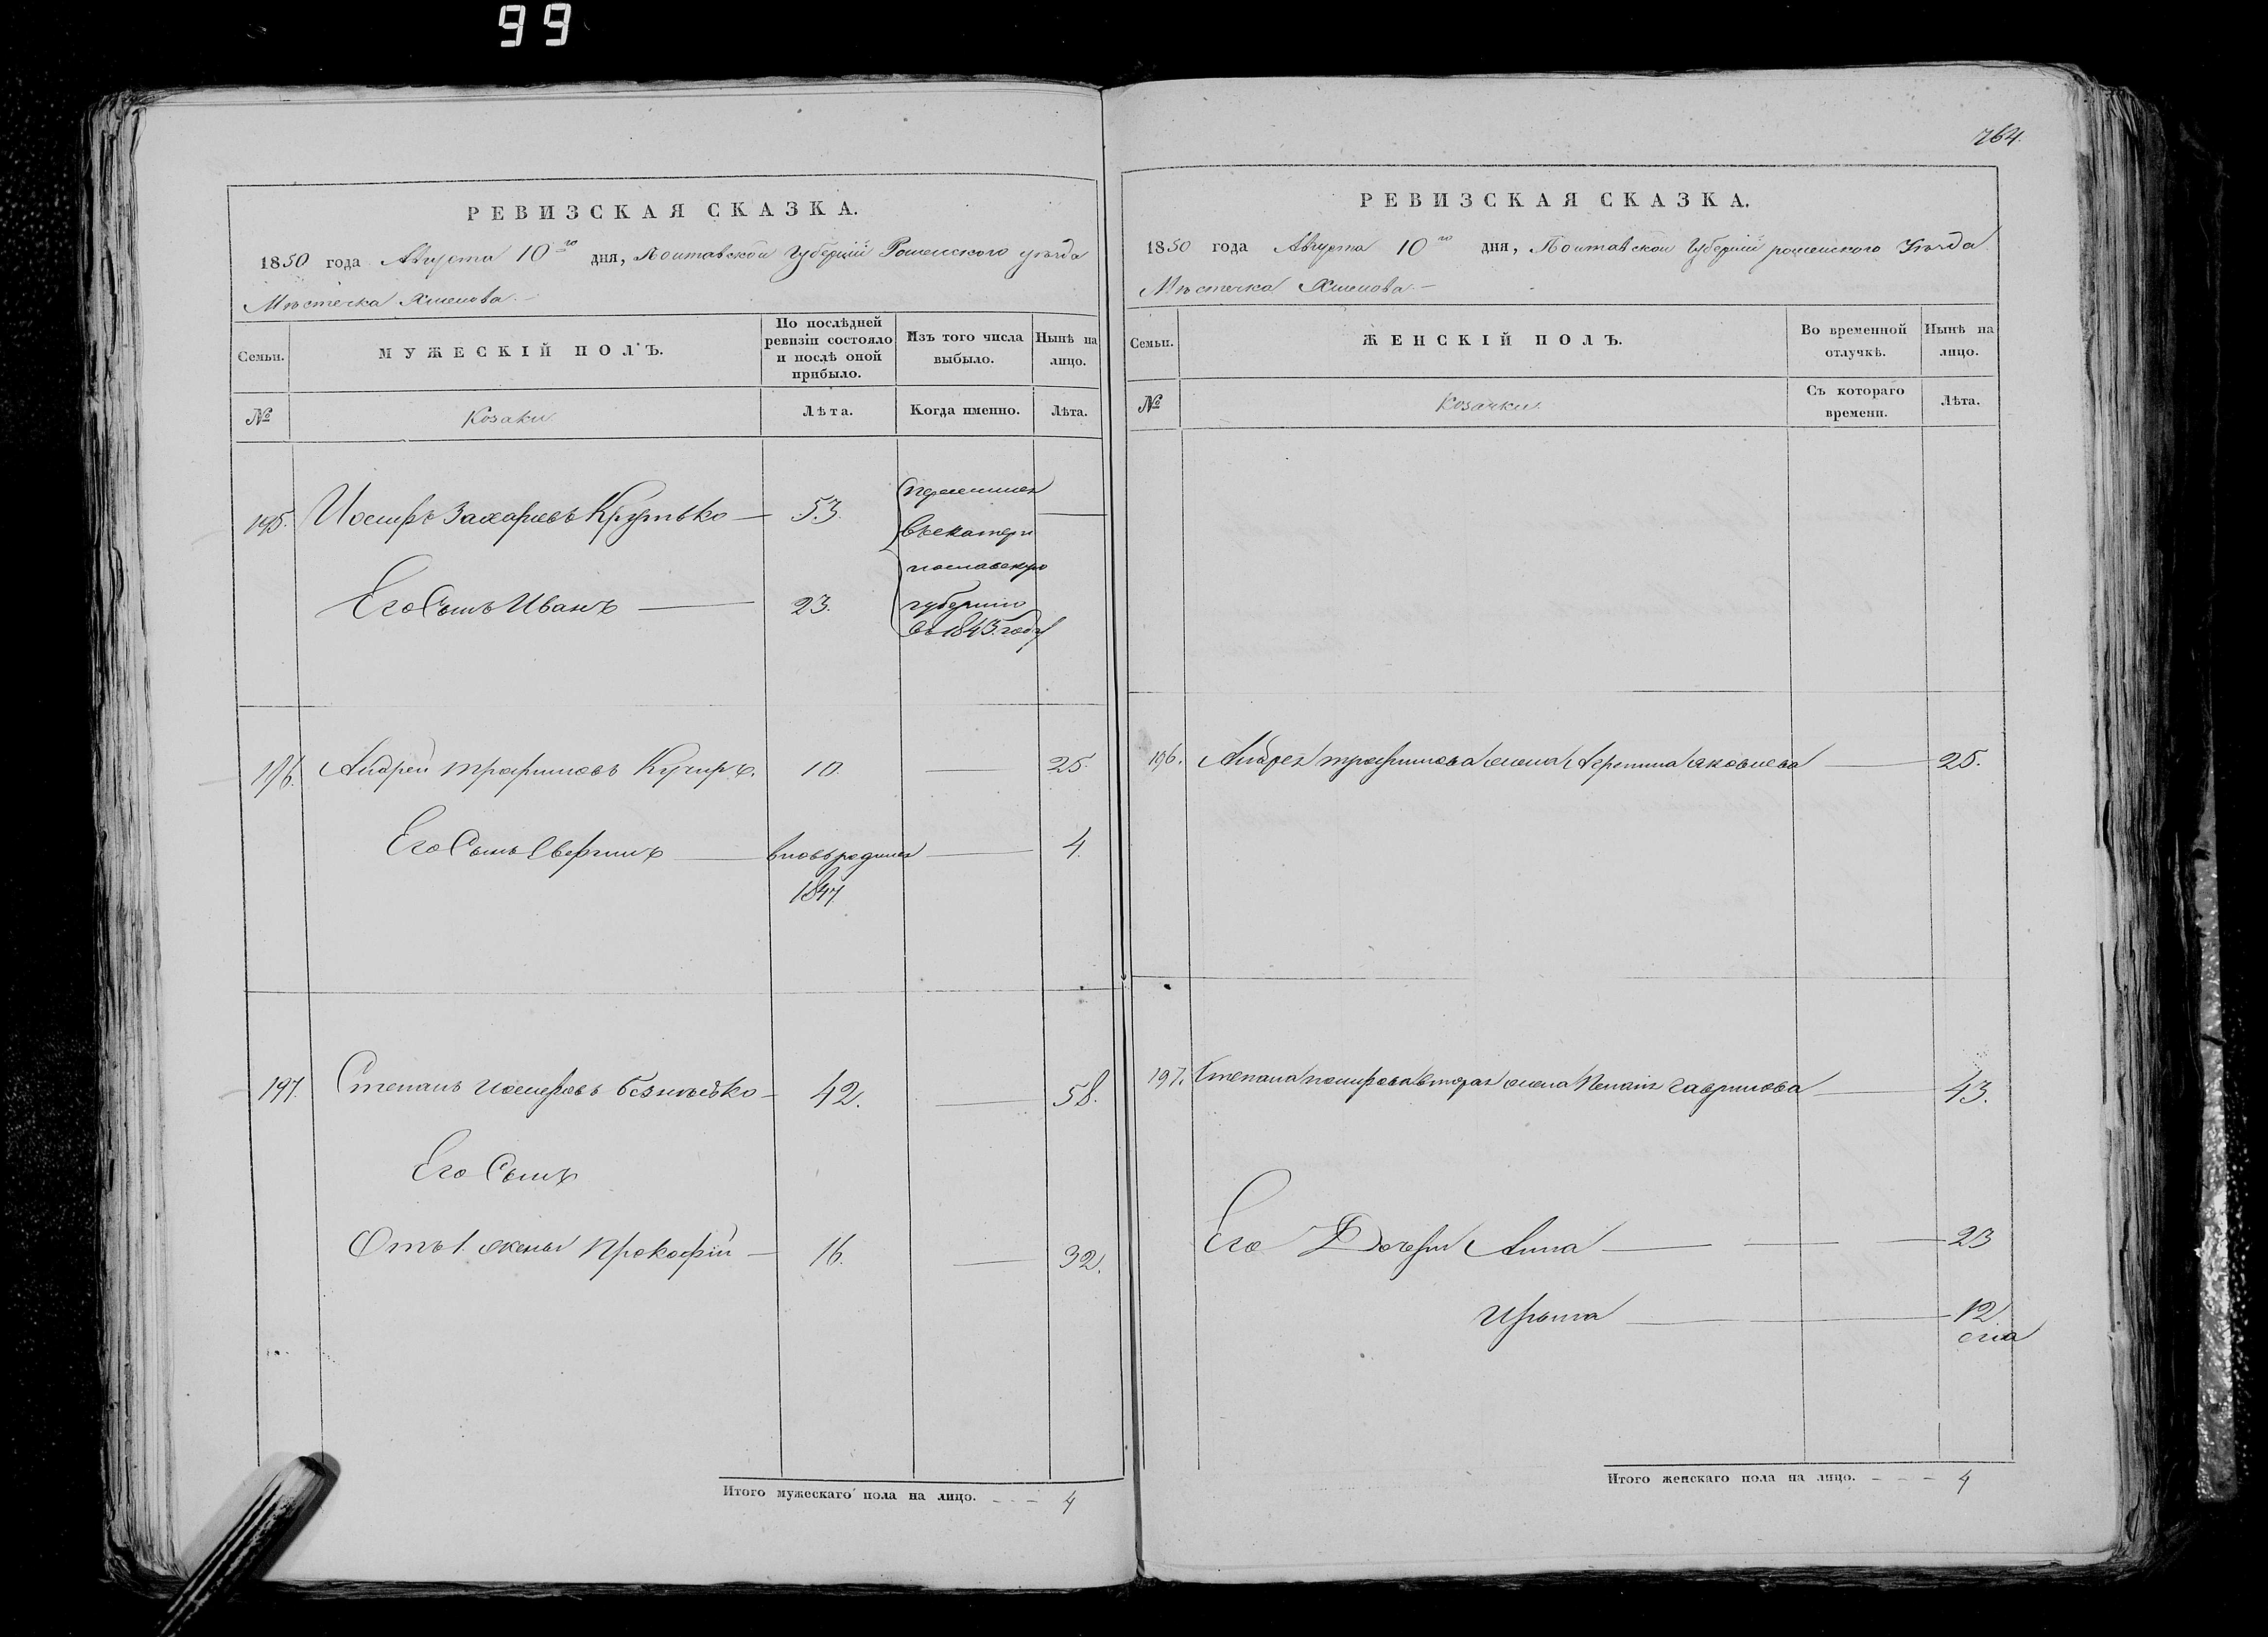 99
РЕВИЗСКАЯ СКАЗКА.
1850 года Августа 10го дня, Полтавской Губернiй Роменского уѣзда
Мѣстечка Хмелова.
Семьи.
МУЖЕСКІЙ ПОЛЪ.
По послѣдней ревизіи состояло и послѣ оной прибыло.
Изъ того числа выбыло.
Нынѣ на лицо.
№
Козаки
Лѣта.
Когда именно.
Лѣта.
195. Иосифъ Захарiевъ Крутько — 53. перешлись
въ екатери
нославскую
Его Сынъ Иванъ — 23. губернiю
въ 1843. году
196. Андрей трофимовъ Кучиръ. 10. — 25.
Его Сынъ — вновь родился — 4.
1847
197. Степанъ иосифовъ — 42. — 58.
Его Сынъ
Отъ 1. жены Прокофiй — 16. — 32.
Итого мужескаго пола на лицо. - - - 4
764.
РЕВИЗСКАЯ СКАЗКА.
1850 года Августа 10го дня, Полтавской Губернiй роменского Уѣзда
Мѣстечка Хмелова. —
Семьи.
ЖЕНСКІЙ ПОЛЪ.
Во временной отлучкѣ.
Нынѣ на лицо.
№
Козачки
Съ котораго времени.
Лѣта.
196. Андрея трофимова жена Агрепина яковлева — 25.
197. Степана иосифова вторая жена гаврилова — 43.
Его Дочери Анна — 23
Ирына — 12
Итого женскаго пола на лицо. - - - 4